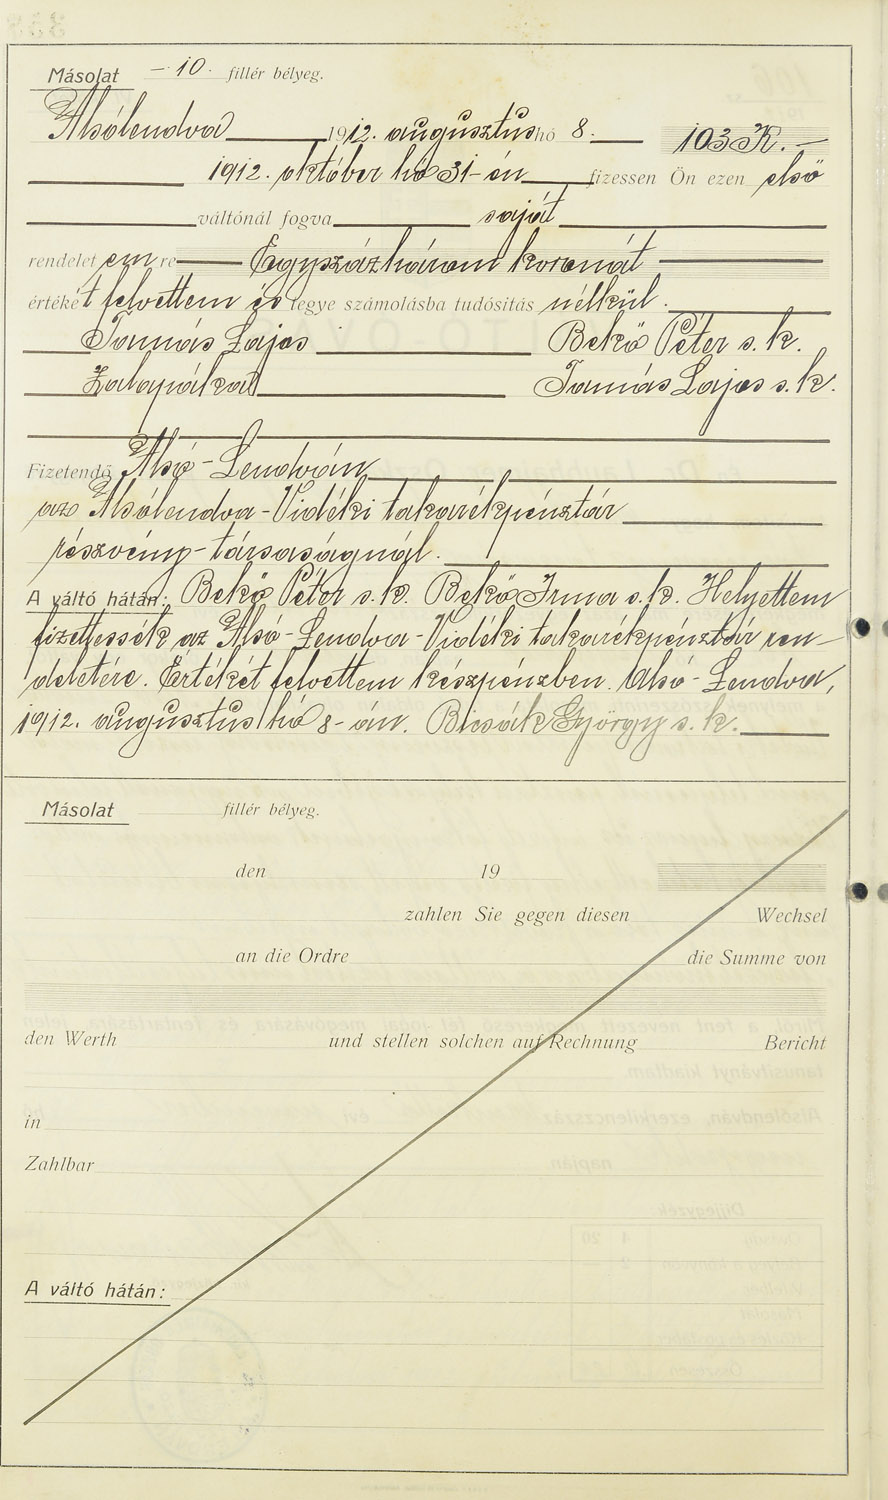 Másolat -10. fillér bélyeg.
Alsólendva 1912. augusztus hó 8. 103 K. -
1912. október hó 31-én fizessen Ön ezen első
váltónál fogva saját
rendelet em re Egyszázhárom koronát
értékét felvettem és tegye számolásba tudósítás nélkül.
Tamás Lajos Bekő Péter s. k.
Zalapákát Tamás Lajos s. k.
Fizetendő Alsó-Lendván
az Alsólendva-Vidéki takarékpénztár
részvény-társaságnál.
A váltó hátán: Bekő Péter s. k. Bekő Irma s. k. Helyettem
fizettessék az Alsó-Lendva-Vidéki takarékpénztár ren-
deletére. Értékét felvettem készpénzben. Alsó-Lendva,
1912. augusztus hó 8-án. Bicsák György s. k.
Másolat fillér bélyeg.
den 19
zahlen Sie gegen diesen Wechsel
an die Ordre die Summe von
den Werth und stellen solchen auf Rechnung Bericht
in
Zahlbar
A váltó hátán: